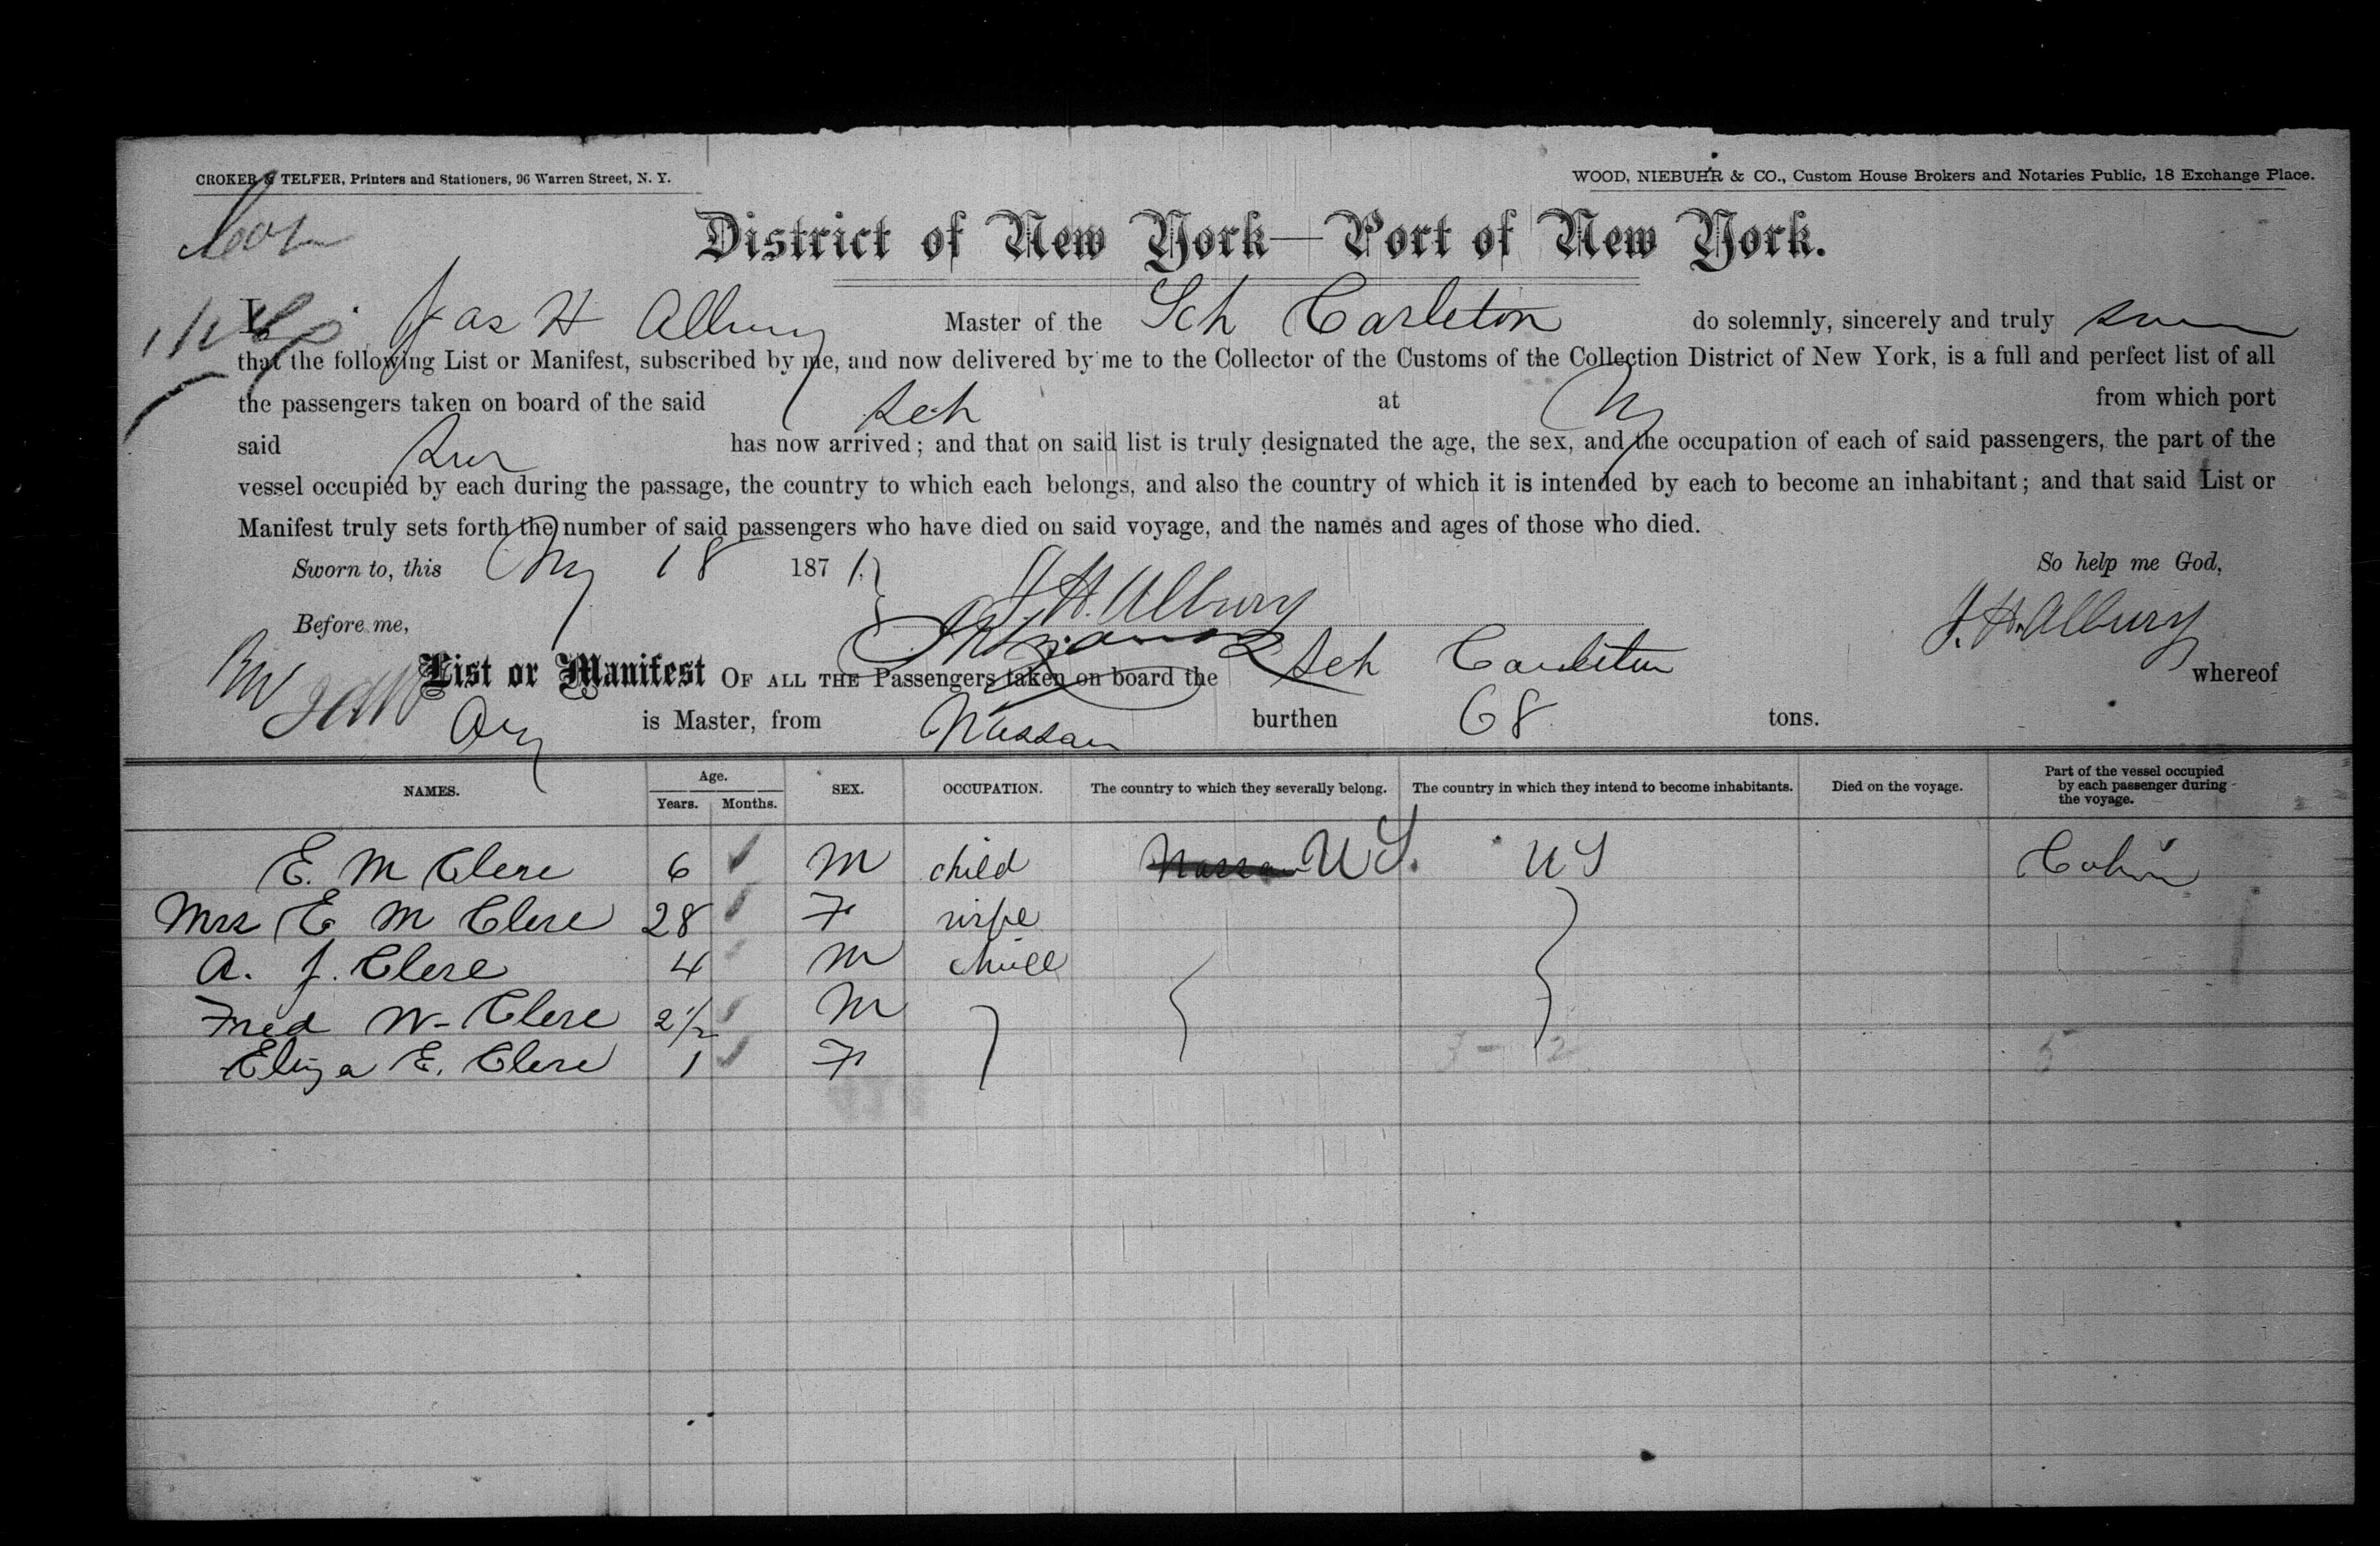 CROKER & TELFER, Printers and Stationers, 96 Warren Street, N. Y.
WOOD, NIEBUHR & CO., Custom House Brokers and Notaries Public, 18 Exchange Place.
District of New York—Port of New York.
I, Jas H Albury Master of the Sch Carleton do solemnly, sincerely and truly
that the following List or Manifest, subscribed by me, and now delivered by me to the Collector of the Customs of the Collection District of New York, is a full and perfect list of all
the passengers taken on board of the said Sch at from which port
said has now arrived; and that on said list is truly designated the age, the sex, and the occupation of each of said passengers, the part of the
vessel occupied by each during the passage, the country to which each belongs, and also the country of which it is intended by each to become an inhabitant; and that said List or
Manifest truly sets forth the number of said passengers who have died on said voyage, and the names and ages of those who died.
Sworn to, this 18 1871. So help me God,
J. H. Albury
Before me, J. H. Albury
List or Manifest OF ALL THE Passengers taken on board the Sch Carleton whereof
is Master, from Nassau burthen 68 tons.
NAMES. Age. Years. Months. SEX. OCCUPATION. The country to which they severally belong. The country in which they intend to become inhabitants. Died on the voyage. Part of the vessel occupied by each passenger during the voyage.
E. M Clere 6 M child Nassau U S. U S Cabin
Mrs E M Clere 28 F wife
A. J. Clere 4 M child
Fred W. Clere 2 1/2 M
Eliza E. Clere 1 F